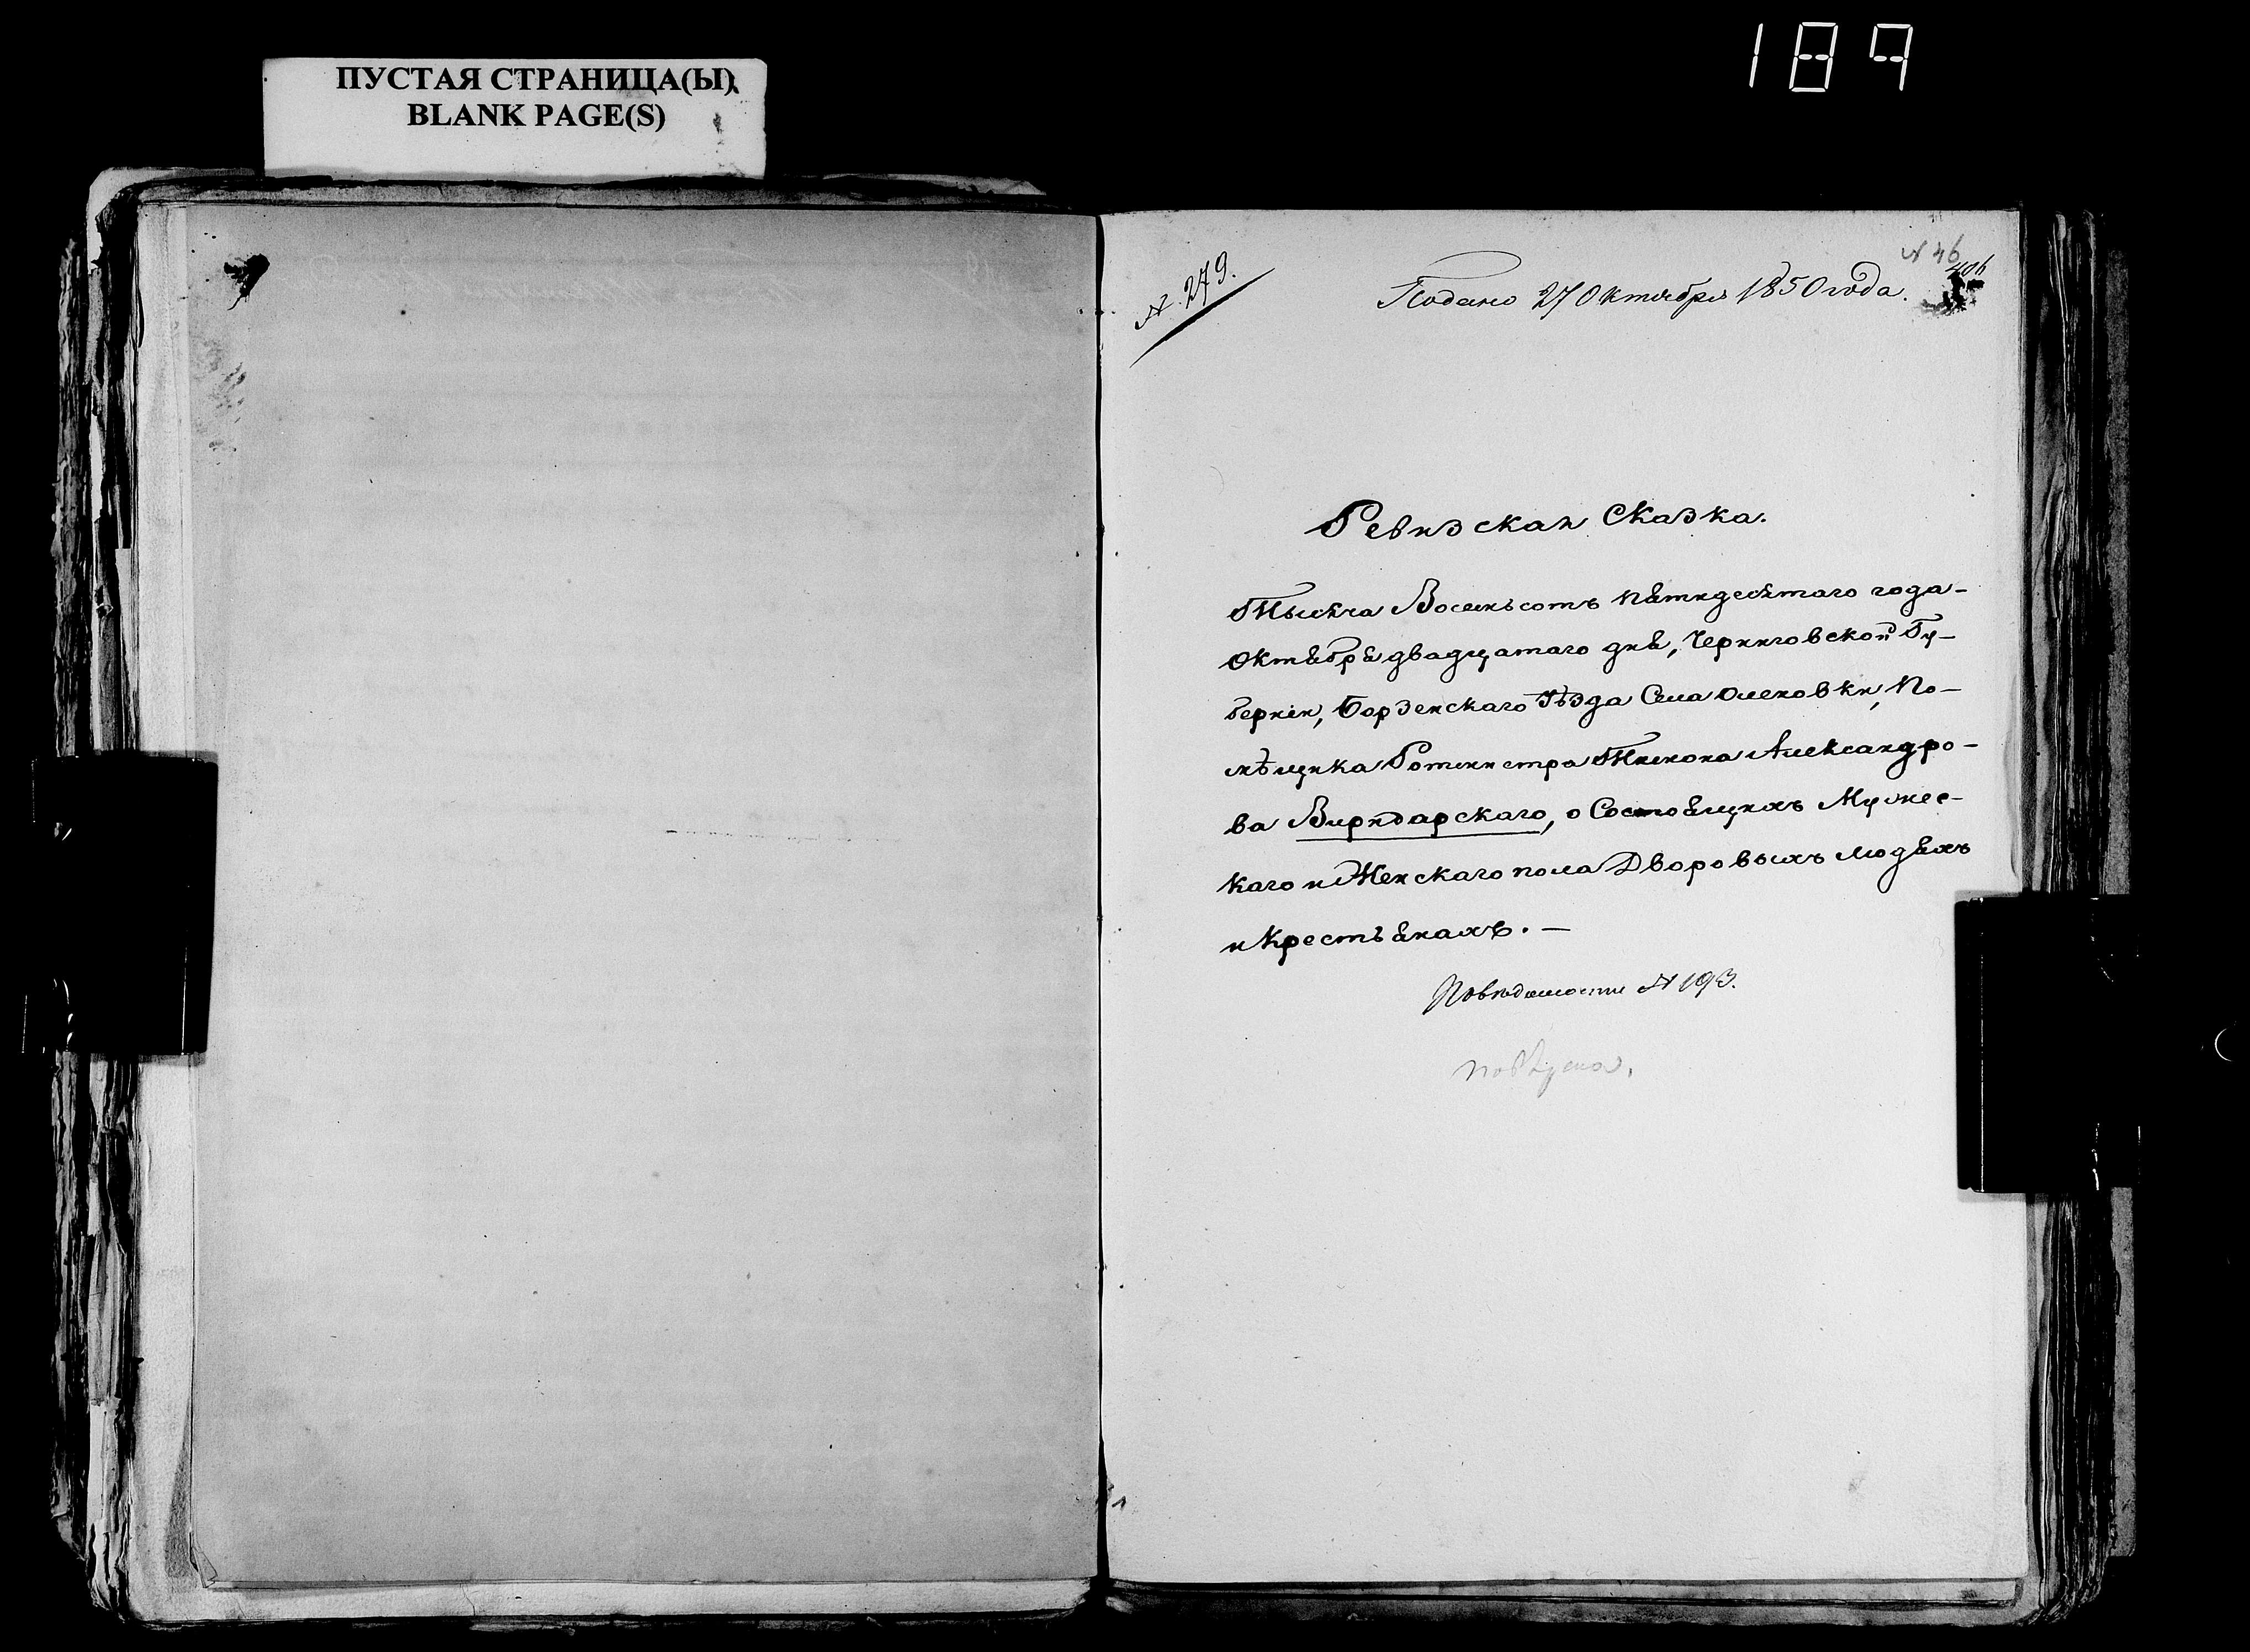 ПУСТАЯ СТРАНИЦА(Ы)
BLANK PAGE(S)
189
N 46
406
N. 279.
Подано 27 Октября 1850 года.
Ревизская Сказка.
Тысяча Восемьсотъ пятидесятаго года
Октября двадцатаго дня, Черниговской Гу-
берніи, Борзенскаго Уѣзда Села Оленовки, По-
мѣщика Ротмистра Тихона Александро-
ва Вирйдарскаго, о Состоящихъ Мужес-
каго и Женскаго пола Дворовыхъ людяхъ
и Крестьянахъ. —
По вѣдомости N 193.